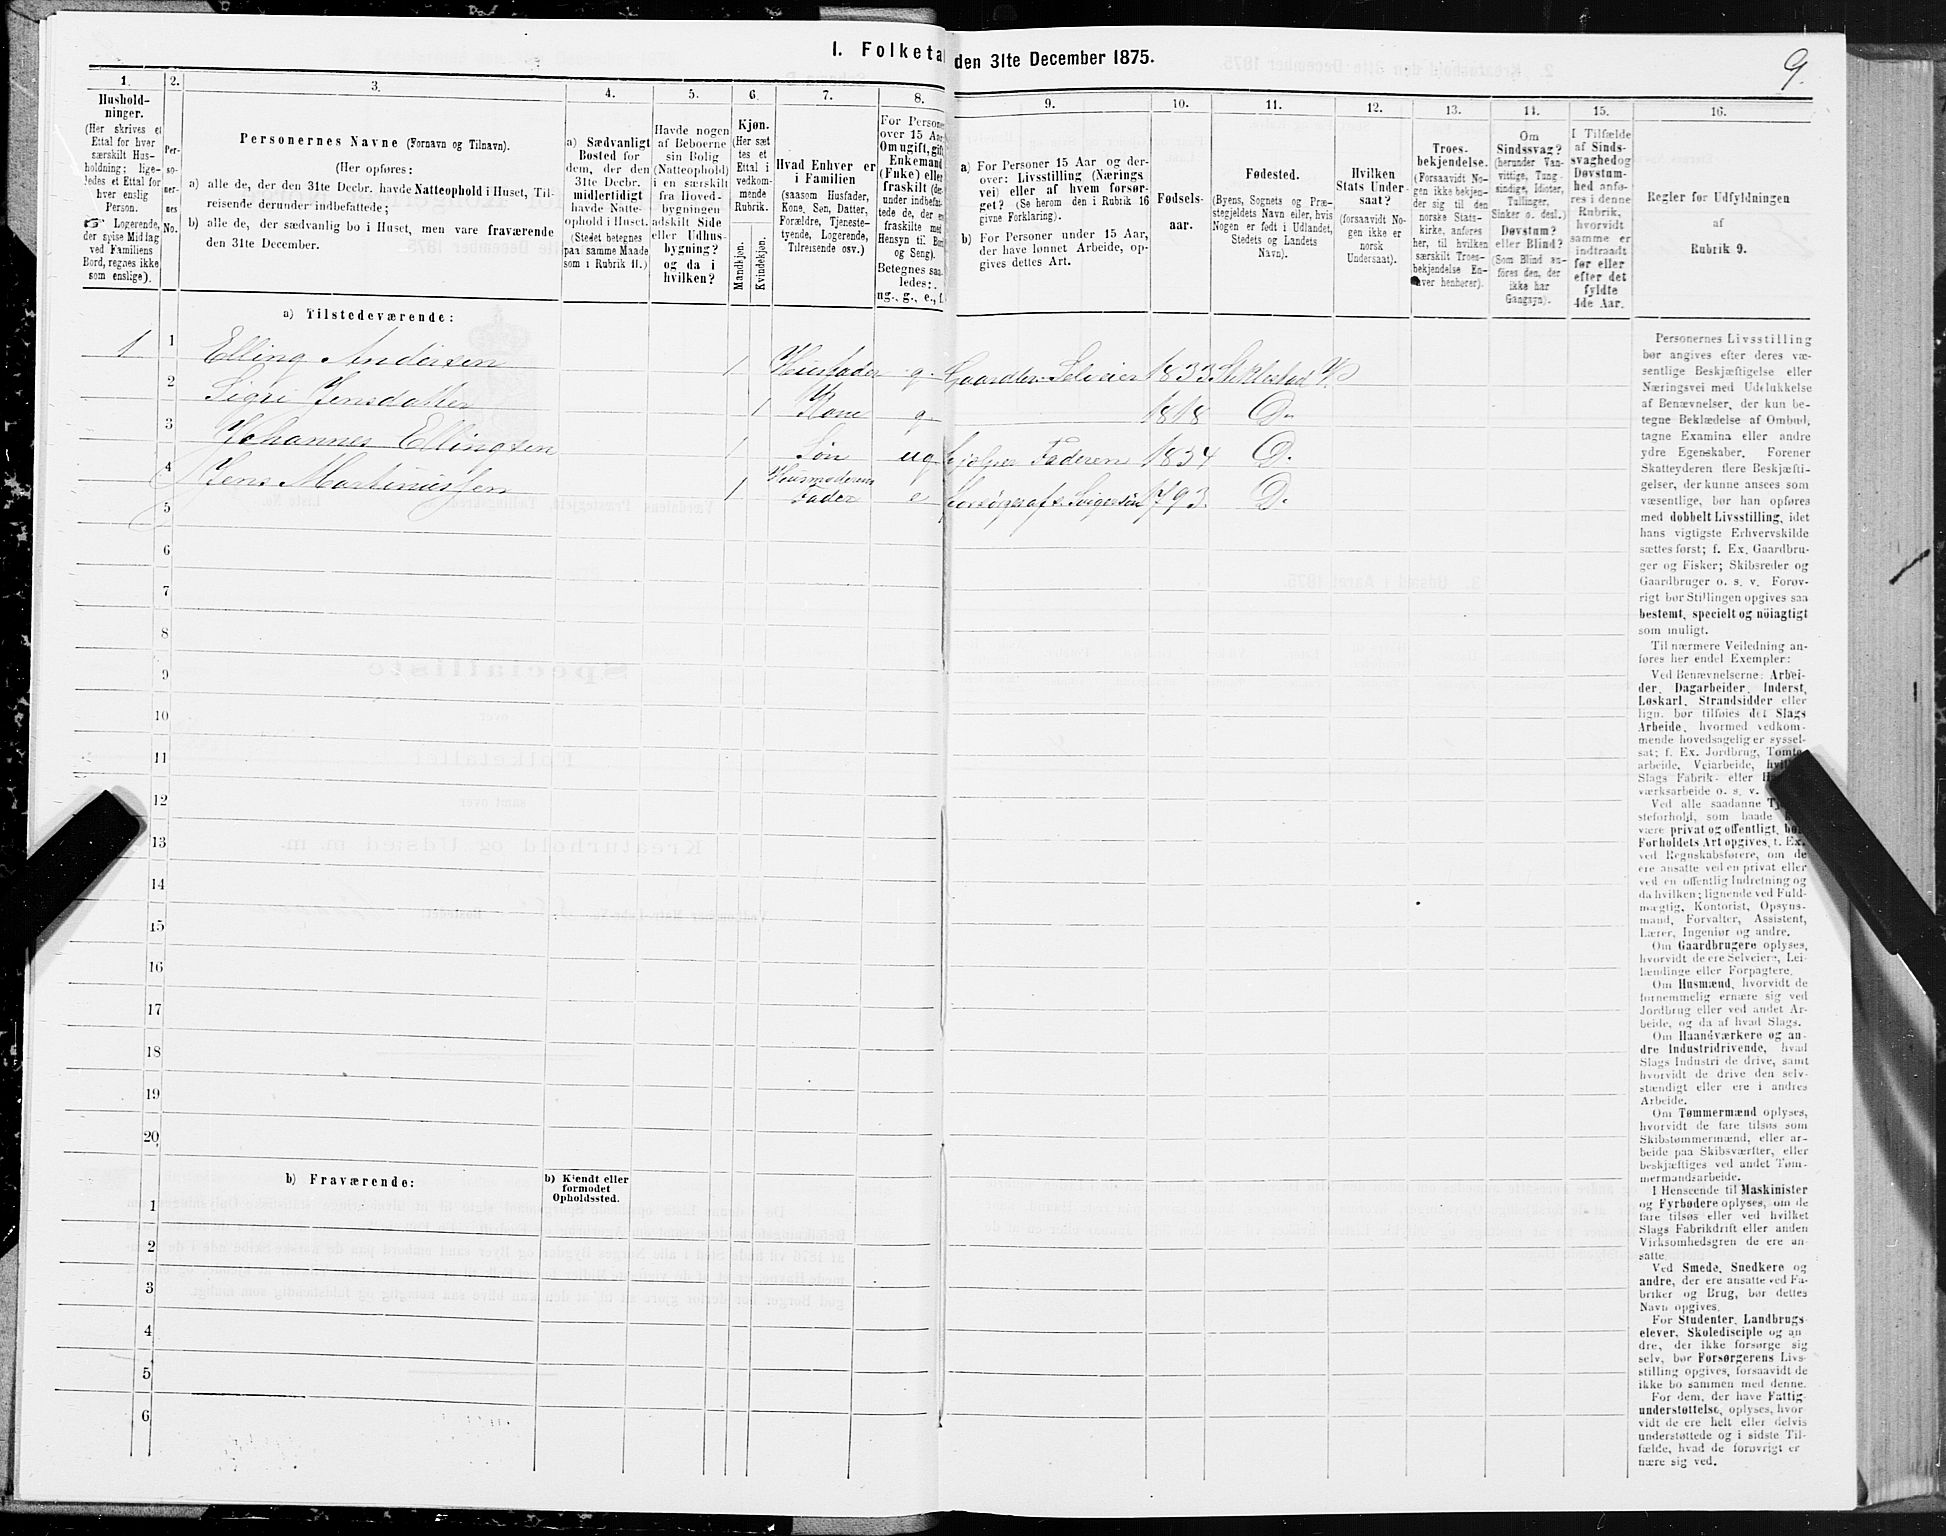 I. Folketal den 31te December 1875.
9.
1.
Hushold-
ninger.
(Her skrives et
Ettal for hver
særskilt Hus-
holdning; lige-
ledes et Ettal for
hver enslig
Person.
Logerende,
der spise Middag
ved Familiens
Bord, regnes ikke
som enslige).
2.
Per-
so-
ner-
nes
No.
3.
Personernes Navne (Fornavn og Tilnavn).
(Her opføres:
a) alle de, der den 31te Decbr. havde Natteophold i Huset, Til-
reisende derunder indbefattede;
b) alle de, der sædvanlig bo i Huset, men vare fraværende
den 31te December.
4.
a) Sædvanligt
Bosted for
dem, der den
31te Decbr.
midlertidigt
havde Natte-
ophold i Huset.
(Stedet betegnes
paa samme Maade
som i Rubrik 11.)
5.
Havde nogen
af Beboerne
sin Bolig
(Natteophold)
i en særskilt
fra Hoved-
bygningen
adskilt Side
eller Udhus-
bygning?
og da i
hvilken?
6.
Kjøn.
(Her sæt-
tes et
Ettal i
vedkom-
mende
Rubrik.
Mandkjøn.
Kvindekjøn.
7.
Hvad Enhver er
i Familien
(saasom Husfader,
Kone, Søn, Datter,
Forældre, Tjeneste-
tyende, Logerende,
Tilreisende osv.)
8.
For Personer
over 15 Aar:
Om ugift, gift,
Enkemand
(Enke) eller
fraskilt (der-
under indbefat-
tede de, der ere
fraskilte med
Hensyn til Bord
og Seng).
Betegnes saa-
ledes:
ug., g., e., f.
9.
a) For Personer 15 Aar og der-
over: Livsstilling (Nærings-
vei) eller af hvem forsør-
get? (Se herom den i Rubrik 16
givne Forklaring).
b) For Personer under 15 Aar,
der have lønnet Arbeide, op-
gives dettes Art.
10.
Fødsels-
aar.
11.
Fødested.
(Byens, Sognets og Præ-
stegjeldets Navn eller, hvis
Nogen er født i Udlandet,
Stedets og Landets
Navn).
12.
Hvilken
Stats Under-
saat?
(forsaavidt No-
gen ikke er
norsk
Undersaat).
13.
Troes-
bekjendelse.
(Forsaavidt No-
gen ikke bekjen-
der sig til den
norske Stats-
kirke, anføres
her, til hvilken
særskilt Troes-
bekjendelse En-
hver henhører).
14.
Om
Sindssvag?
(herunder Van-
vittige, Tung-
sindige, Idioter,
Tullinger,
Sinker o. desl.)
Døvstum?
eller Blind?
(Som Blind an-
føres den, der
ikke har
Gangsyn).
15.
I Tilfælde
af Sinds-
svaghed og
Døvstum-
hed anfø-
res i denne
Rubrik,
hvorvidt
samme er
indtraadt
før eller
efter det
fyldte
4de Aar.
16.
Regler for Udfyldningen
af
Rubrik 9.
a) Tilstedeværende:
1 1 Elling Andersen 1 Husfader g. Gaardbr. Selveier 1833 Stiklestad V.
2 Sigri Jensdatter 1 Kone g 1818 D.
3 Johannes Ellingsen 1 Søn ug hjælper Faderen 1854 D.
4 Jens Martinussen 1 Husmoderens Fader e 1793. D.
5
6
7
8
9
10
11
12
13
14
15
16
17
18
19
20
b) Fraværende:
b) Kjendt eller
formodet
Opholdssted.
1
2
3
4
5
6
Personernes Livsstilling
bør angives efter deres væ-
sentlige Beskjæftigelse eller
Næringsvei med Udelukkelse
af Benævnelser, der kun be-
tegne Beklædelse af Ombud,
tagne Examina eller andre
ydre Egenskaber. Forener
Skatteyderen flere Beskjæfti-
gelser, der kunne ansees som
væsentlige, bør han opføres
med dobbelt Livsstilling, idet
hans vigtigste Erhvervskilde
sættes først; f. Ex. Gaardbru-
ger og Fisker; Skibsreder og
Gaardbruger o. s. v. Forøv-
rigt bør Stillingen opgives saa
bestemt, specielt og nöiagtigt
som muligt.
Til nærmere Veiledning an-
føres her endel Exempler:
Ved Benævnelserne: Arbei-
der, Dagarbeider, Inderst,
Løskarl, Strandsidder eller
lign. bør tilføies det Slags
Arbeide, hvormed vedkom-
mende hovedsagelig er syssel-
sat; f. Ex. Jordbrug, Tomte-
arbeide, Veiarbeide, hvilket
Slags Fabrik- eller Haand-
værksarbeide o. s. v.
Ved alle saadanne Tjene-
steforhold, som baade kan
være privat og offentligt, bør
Forholdets Art opgives, f. Ex.
ved Regnskabsførere, om de
ere ansatte ved en privat eller
ved en offentlig Indretning og
da hvilken; lignende ved Fuld-
mægtig, Kontorist, Opsyns-
mand, Forvalter, Assistent,
Lærer, Ingeniør og andre.
Om Gaardbrugere oplyses,
hvorvidt de ere Selveiere, Lei-
lændinge eller Forpagtere.
Om Husmænd, hvorvidt de
fornemmelig ernære sig ved
Jordbrug eller ved andet Ar-
beide, og da af hvad Slags.
Om Haandværkere og an-
dre Industridrivende, hvad
Slags Industri de drive, samt
hvorvidt de drive den selv-
stændigt eller ere i andres
Arbeide.
Om Tømmermænd oplyses,
hvorvidt de fare tilsøs som
Skibstømmermænd, eller ar-
beide paa Skibsværfter, eller
beskjæftiges ved andet Tøm-
mermandsarbeide.
I Henseende til Maskinister
og Fyrbødere oplyses, om de
fare tilsøs eller ved hvilket
Slags Fabrikdrift eller anden
Virksomhedsgren de ere an-
satte.
Ved Smede, Snedkere og
andre, der ere ansatte ved Fa-
briker og Brug, bør dettes
Navn opgives.
For Studenter, Landbrugs-
elever, Skoledisciple og an-
dre, der ikke forsørge sig
selv, bør Forsørgerens Livs-
stilling opgives, forsaavidt de
ikke bo sammen med denne.
For dem, der have Fattig-
understøttelse, oplyses, hvor-
vidt de ere helt eller delvis
understøttede og i sidste Til-
fælde, hvad de forøvrigt er-
nære sig ved.